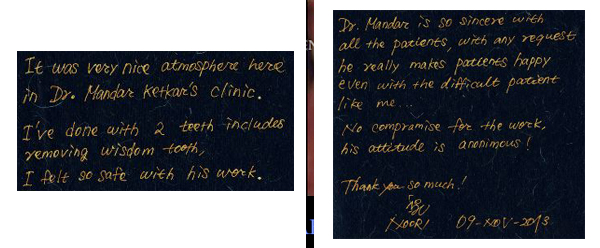 It was very nice atmosphere here
in Dr. Mandar Ketkar's clinic.
I've done with 2 teeth includes
removing wisdom tooth,
I felt so safe with his work.
Dr. Mandar is so sincere with
all the patients, with any request
he really makes patients happy
even with the difficult patient
like me...
No compromise for the work,
his attitude is anonimous!
Thank you so much!
NOORI 09-NOV-2013